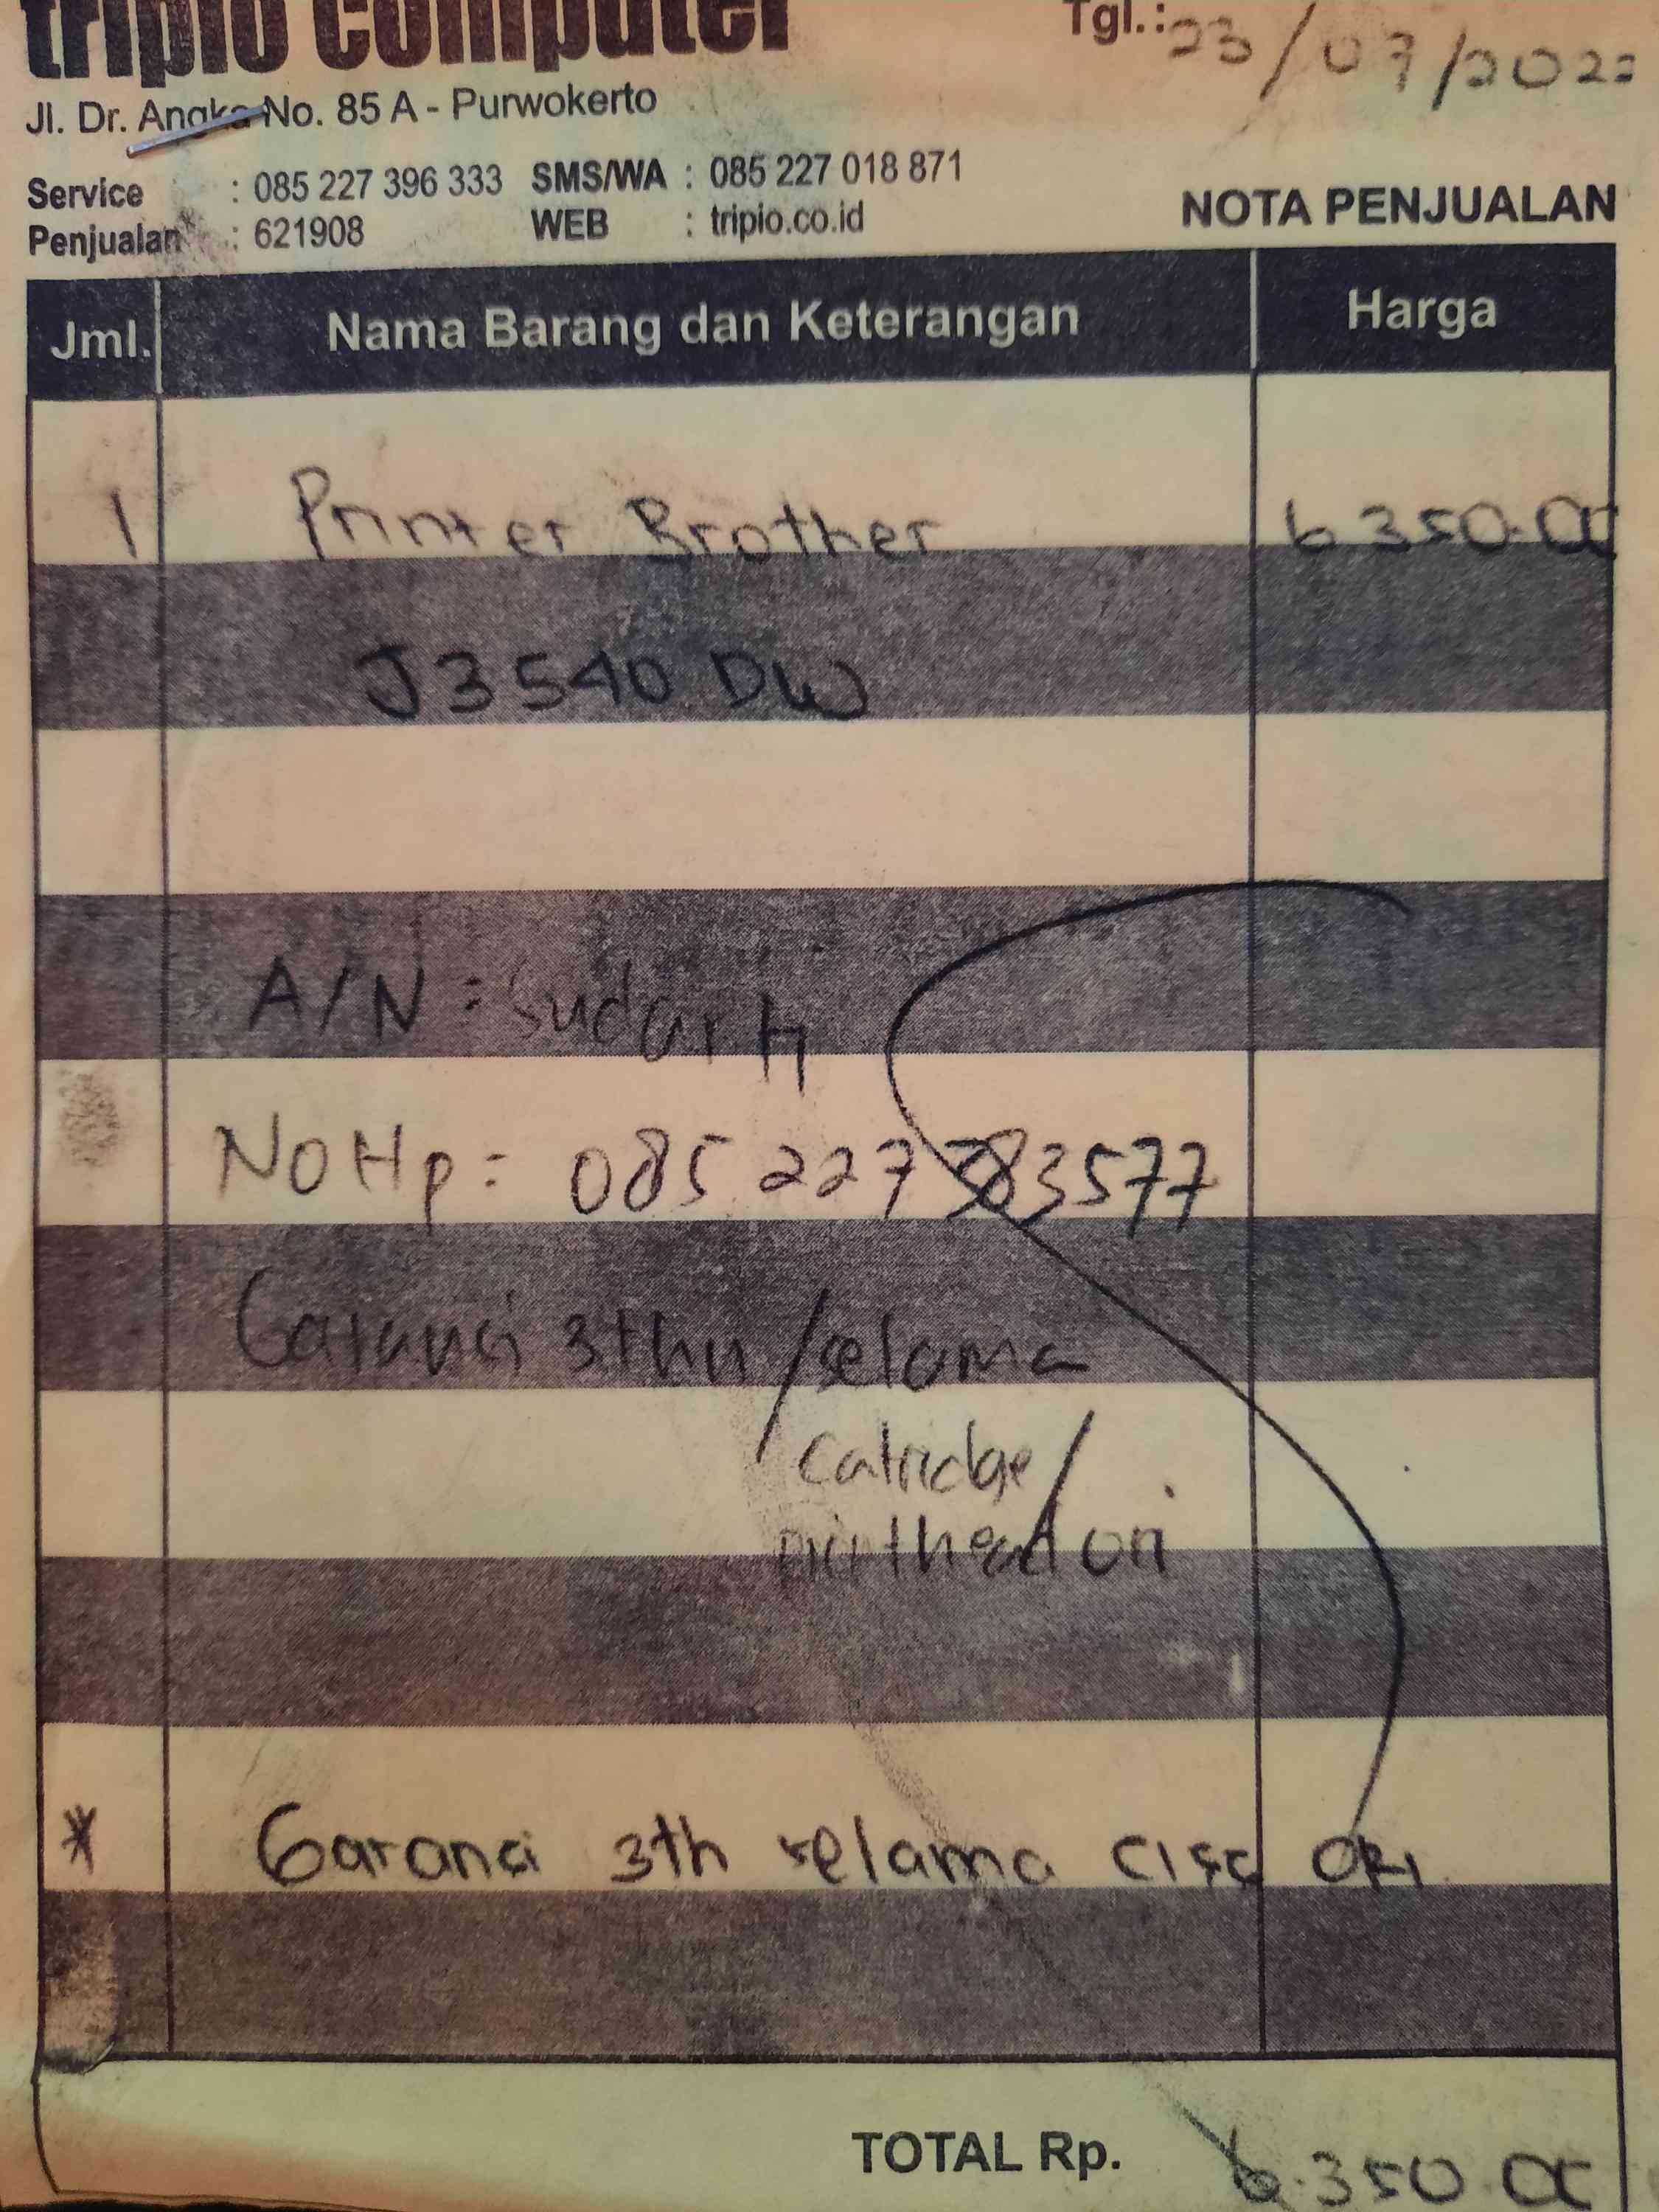 tripio computer
Tgl.: 23/07/2022
Jl. Dr. Angka No. 85 A - Purwokerto
Service : 085 227 396 333 SMS/WA : 085 227 018 871
Penjualan : 621908 WEB : tripio.co.id
NOTA PENJUALAN
Jml. Nama Barang dan Keterangan Harga
1 Printer Brother 6.350.00
J3540 DW
A/N : Sudarti
No Hp : 085 227 383577
Garansi 3thn/selama
catridge/
printhead ori
* Garansi 3th selama CISS ORI
TOTAL Rp. 6.350.00